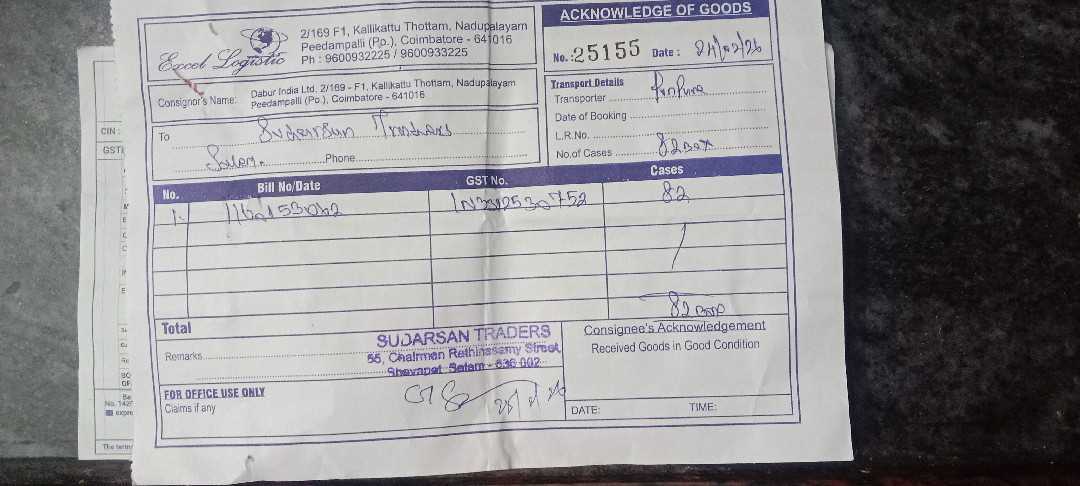 Excel Logistic
2/169 F1, Kallikattu Thottam, Nadupalayam
Peedampalli (Po.), Coimbatore - 641016
Ph : 9600932225 / 9600933225
ACKNOWLEDGE OF GOODS
No.: 25155 Date : 24/02/26
Consignor's Name: Dabur India Ltd. 2/169 - F1, Kallikattu Thottam, Nadupalayam
Peedampalli (Po.), Coimbatore - 641016
Transport Details
Transporter
Date of Booking
L.R.No.
No.of Cases 82 Box
To Sudarsun Traders
Salem. Phone
No. Bill No/Date GST No. Cases
1. 82
82 Box
Total
Remarks
SUDARSAN TRADERS
55, Chairman Rathinasamy Street
Shevapet, Salem - 636 002.
Consignee's Acknowledgement
Received Goods in Good Condition
FOR OFFICE USE ONLY
Claims if any
DATE: TIME:
CIN :
The terms